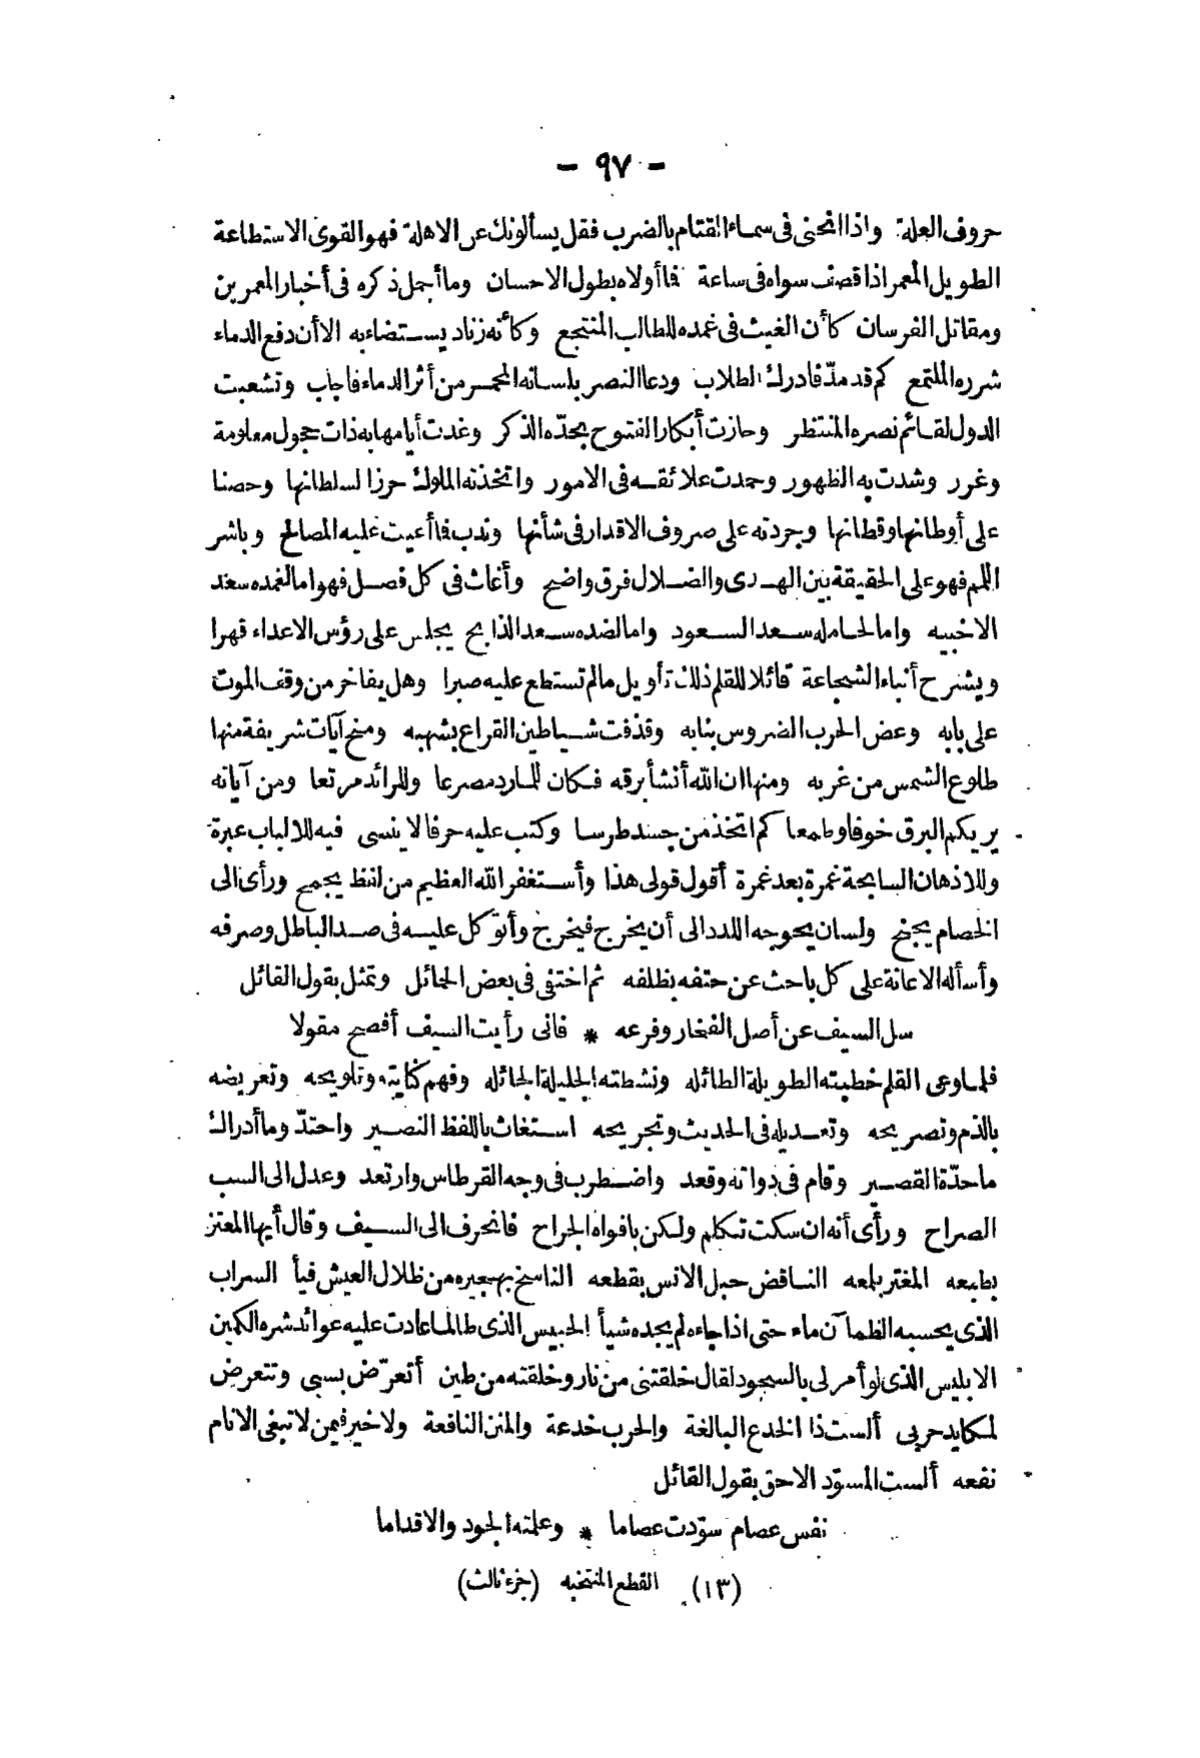 - ٩٧ -
حروف العلة واذا انحنى فى سماء القتام بالضرب فقل يسألونك عن الاهلة فهو القوى الاستطاعة
الطويل المعمر اذا قصف سواه فى ساعة فما أولاه بطول الاحسان وما أجمل ذكره فى أخبار المعمرين
ومقاتل الفرسان كأن الغيث فى غمده للطالب المنتجع وكأنه زناد يستضاء به الا أن دفع الدماء
شرره الملتمع كم قد مدّ فادرك الطلاب ودعا النصر بلسانه المحمر من أثر الدماء فاجاب وتشعبت
الدول لقائم نصره المنتظر وحازت أبكار الفتوح بحدّه الذكر وغدت أيامها به ذات حجول معلومة
وغرر وشدت به الظهور وحمدت علائقه فى الامور واتخذته الملوك حرزا لسلطانها وحصنا
على أوطانها وقطانها وجردته على صروف الاقدار فى شأنها وندب فما أعيت عليه المصالح وباشر
اللمم فهو على الحقيقة بين الهدى والضلال فرق واضح وأغاث فى كل فصل فهو اما لغمده سعد
الاخبيه واما لحامله سعد السعود واما لضده سعد الذابح يجلس على رؤس الاعداء قهرا
ويشرح أنباء الشجاعة قائلا للقلم ذلك تأويل مالم تستطع عليه صبرا وهل يفاخر من وقف الموت
على بابه وعض الحرب الضروس بنابه وقذفت شياطين القراع بشهبه ومنح آيات شريفة منها
طلوع الشمس من غربه ومنها ان الله أنشأ برقه فكان للمارد مصرعا وللرائد مرتعا ومن آياته
يريكم البرق خوفا وطمعا كم اتخذ من جسد طرسا وكتب عليه حرفا لا ينسى فيه للالباب عبرة
وللاذهان السابحة غمرة بعد غمرة أقول قولى هذا وأستغفر الله العظيم من لفظ يجمح ورأى الى
الخصام يجنح ولسان يحوجه اللدد الى أن يخرج فيخرج وأتوكل عليه فى صد الباطل وصرفه
وأسأله الاعانة على كل باحث عن حتفه بظلفه ثم اختفى فى بعض الحمائل وتمثل بقول القائل
سل السيف عن أصل الفخار وفرعه * فانى رأيت السيف أفصح مقولا
فلما وعى القلم خطبته الطويلة الطائله ونشطته الجليلة الجائله وفهم كنايته وتلويحه وتعريضه
بالذم وتصريحه وتعديله فى الحديث وتجريحه استغاث باللفظ النصير واحتدّ وما أدراك
ما حدّة القصير وقام فى دواته وقعد واضطرب فى وجه القرطاس وارتعد وعدل الى السب
الصراح ورأى أنه ان سكت تكلم ولكن بافواه الجراح فانحرف الى السيف وقال أيها المعتز
بطبعه المغتر بلمعه الناقض حبل الانس بقطعه الناسخ بهجيره من ظلال العيش فيأ السراب
الذى يحسبه الظمآن ماء حتى اذا جاءه لم يجده شيأ الحبيس الذى طالما عادت عليه عوائد شره الكمين
الابليس الذى لو أمر لى بالسجود لقال خلقتنى من نار وخلقته من طين أتعرّض بسبى وتتعرض
لمكايد حربى ألست ذا الخدع البالغة والحرب خدعة والمنن النافعة ولا خير فيمن لا تبغى الانام
نفعه ألست المسوّد الاحق بقول القائل
نفس عصام سوّدت عصاما * وعلمته الجود والاقداما
(١٣) القطع المنتخبه (جزء ثالث)